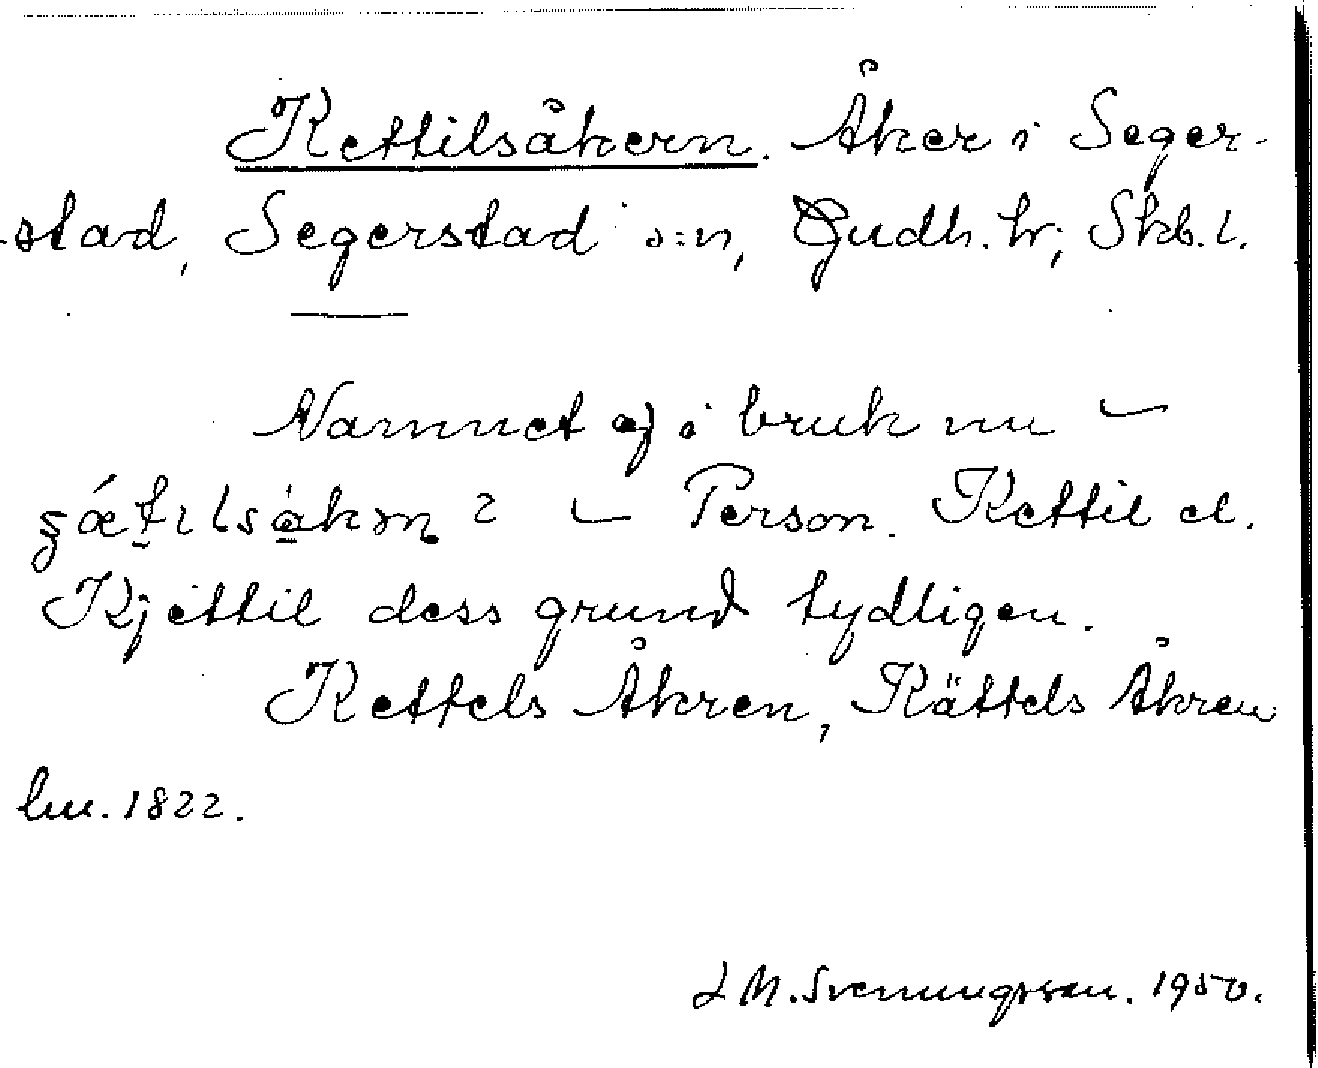 Kettilsåkern. Åker i Seger-
stad, Segerstad s:n, Gudh. hr; Skb. l.
Namnet ej i bruk nu –
? – Person. Kettil el.
Kjettil dess grund tydligen.
Kettels Åkren, Kättels Åkren
lm. 1822.
L M. Svenungsson. 1950.